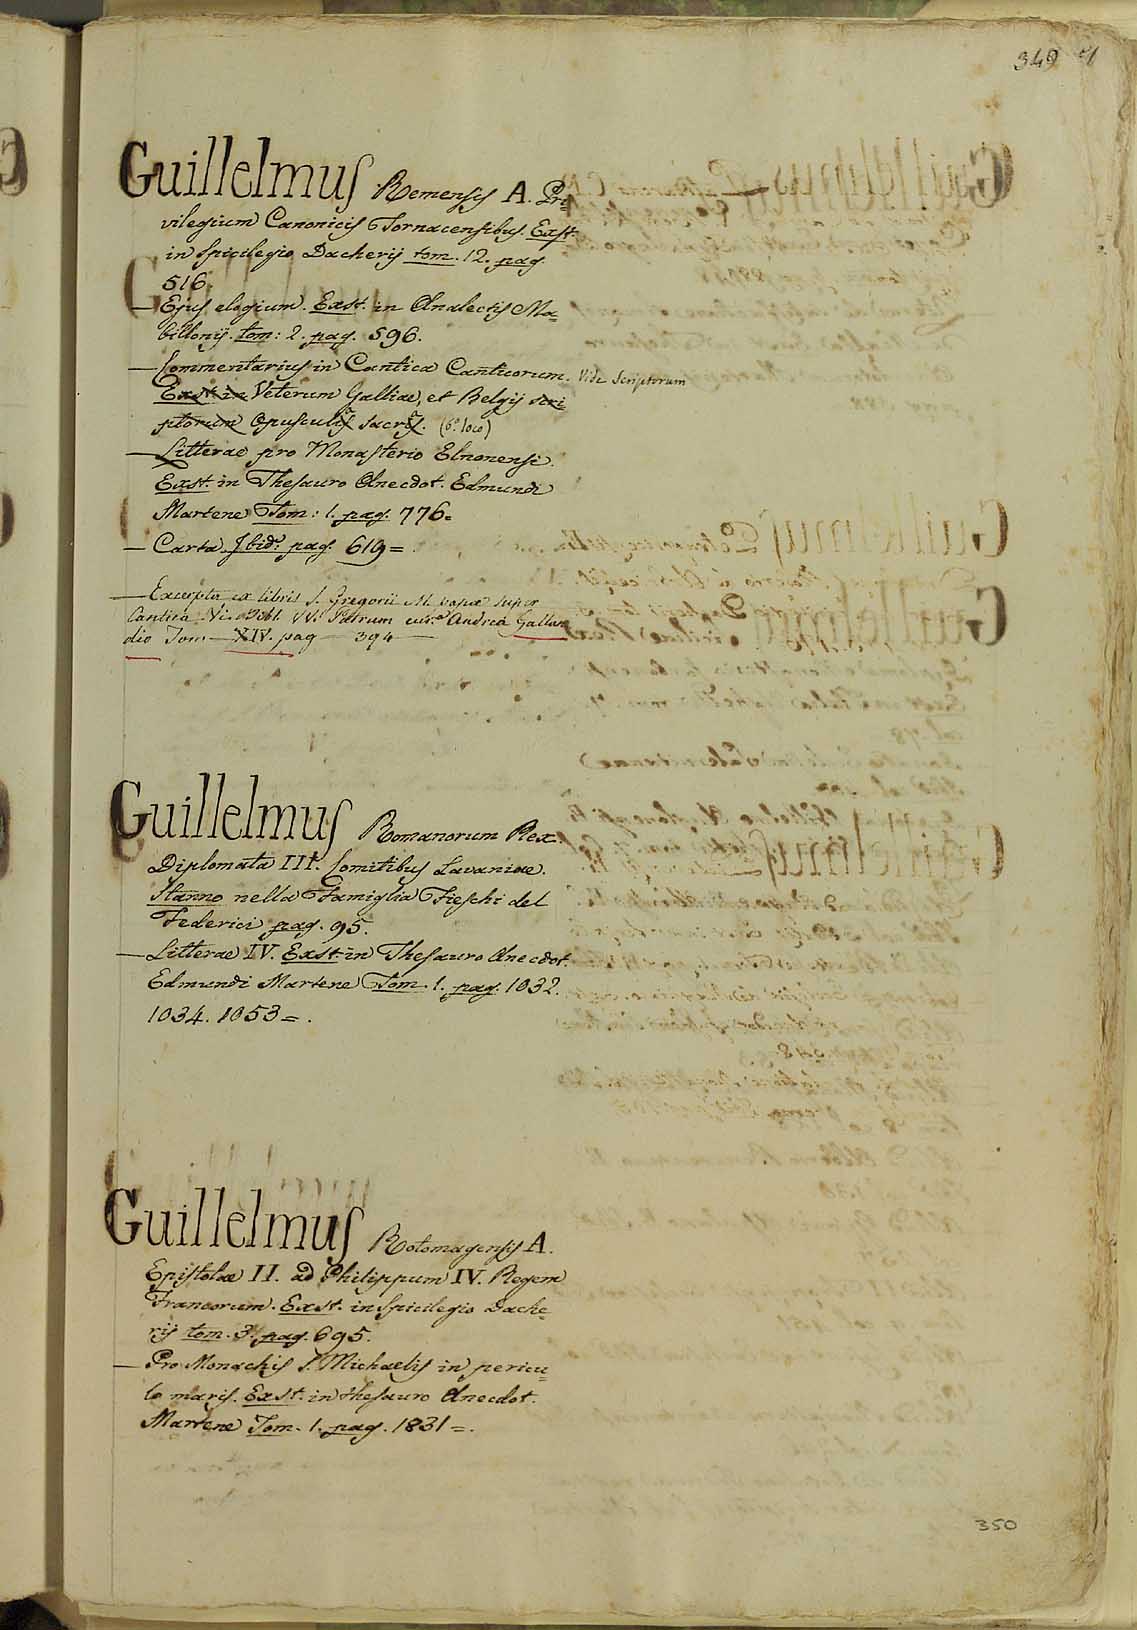 349
Guillelmus Remensis A. Pri=
vilegium Canonicis Tornacensibus. Exst.
in Spicilegio Dacherij tom. 12. pag.
516.
— Ejus elogium. Exst. in Analectis Ma=
billonij. tom: 2. pag. 596.
— Commentarius in Cantica Canticorum. Vide Scriptorum
Exst. in Veterum Galliae, et Belgij scri=
ptorum Opusculis sacris. (6.º loco)
— Litterae pro Monasterio Elnonensi.
Exst. in Thesauro Anecdot. Edmundi
Martene Tom: 1. pag. 776=
— Carta. Ibid. pag. 619=.
— Excerpta ex libris S. Gregorii M. Papae super
Cantica. Vi. Bibl. VV. Patrum cura Andrea Gallan
dio Tom — XIV. pag — 394 —
Guillelmus Romanorum Rex.
Diplomata III. Comitibus Lavaniae.
Stanno nella Famiglia Fieschi del
Federici pag. 95.
— Litterae IV. Exst. in Thesauro Anecdot.
Edmundi Martene Tom. 1. pag. 1032.
1034. 1053=.
Guillelmus Rotomagensis A.
Epistolae II. ad Philippum IV. Regem
Francorum. Exst. in Spicilegio Dache=
rij tom. 3. pag. 695.
— Pro Monachis S. Michaelis in pericu=
lo maris. Exst. in thesauro Anecdot.
Martene Tom. 1. pag. 1831=.
350